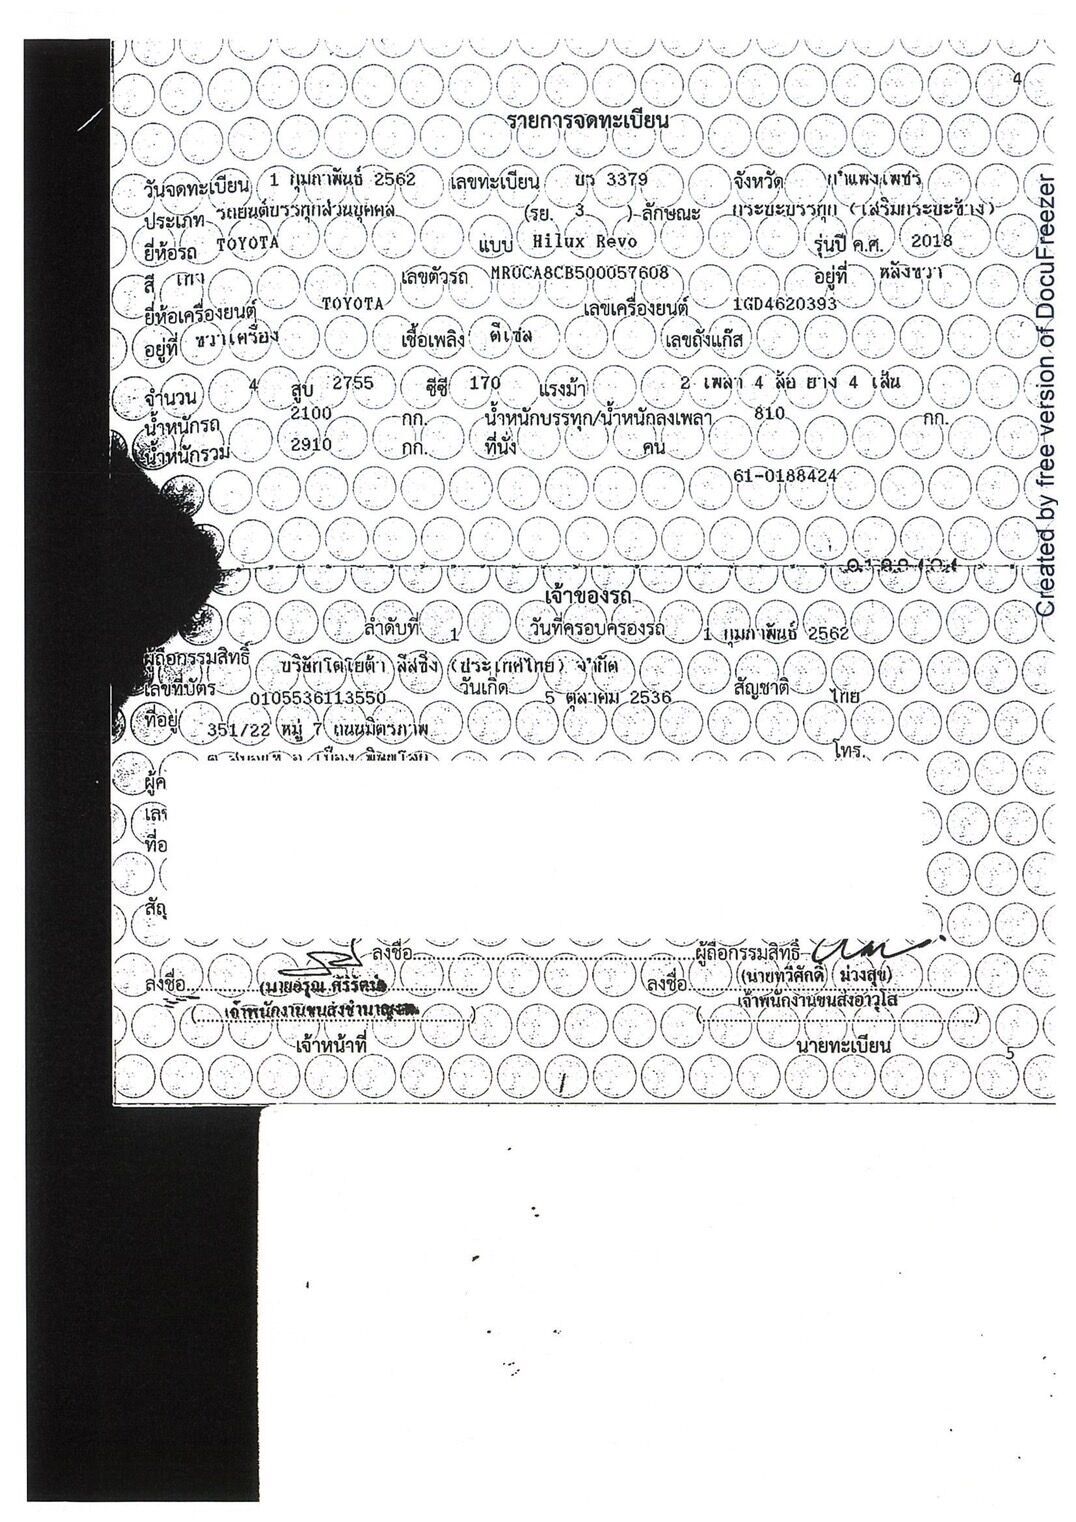 4
รายการจดทะเบียน
วันจดทะเบียน 1 กุมภาพันธ์ 2562 เลขทะเบียน บร 3379 จังหวัด กำแพงเพชร
ประเภท รถยนต์บรรทุกส่วนบุคคล (รย. 3 ) ลักษณะ กระบะบรรทุก (เสริมกระบะข้าง)
ยี่ห้อรถ TOYOTA แบบ Hilux Revo รุ่นปี ค.ศ. 2018
สี เทา เลขตัวรถ MR0CA8CB500057608 อยู่ที่ หลังขวา
ยี่ห้อเครื่องยนต์ TOYOTA เลขเครื่องยนต์ 1GD4620393
อยู่ที่ ขวาเครื่อง เชื้อเพลิง ดีเซล เลขถังแก๊ส
จำนวน 4 สูบ 2755 ซีซี 170 แรงม้า 2 เพลา 4 ล้อ ยาง 4 เส้น
น้ำหนักรถ 2100 กก. น้ำหนักบรรทุก/น้ำหนักลงเพลา 810 กก.
น้ำหนักรวม 2910 กก. ที่นั่ง คน
61-0188424
เจ้าของรถ
ลำดับที่ 1 วันที่ครอบครองรถ 1 กุมภาพันธ์ 2562
ผู้ถือกรรมสิทธิ์ บริษัทโตโยต้า ลีสซิ่ง (ประเทศไทย) จำกัด
เลขที่บัตร 0105536113550 วันเกิด 5 ตุลาคม 2536 สัญชาติ ไทย
ที่อยู่ 351/22 หมู่ 7 ถนนมิตรภาพ
โทร.
ลงชื่อ ผู้ถือกรรมสิทธิ์
ลงชื่อ (นายอรุณ ศิริรัตน์) ลงชื่อ (นายทวีศักดิ์ ม่วงสุข)
เจ้าพนักงานขนส่งชำนาญงาน เจ้าพนักงานขนส่งอาวุโส
เจ้าหน้าที่ นายทะเบียน
5
Created by free version of DocuFreezer